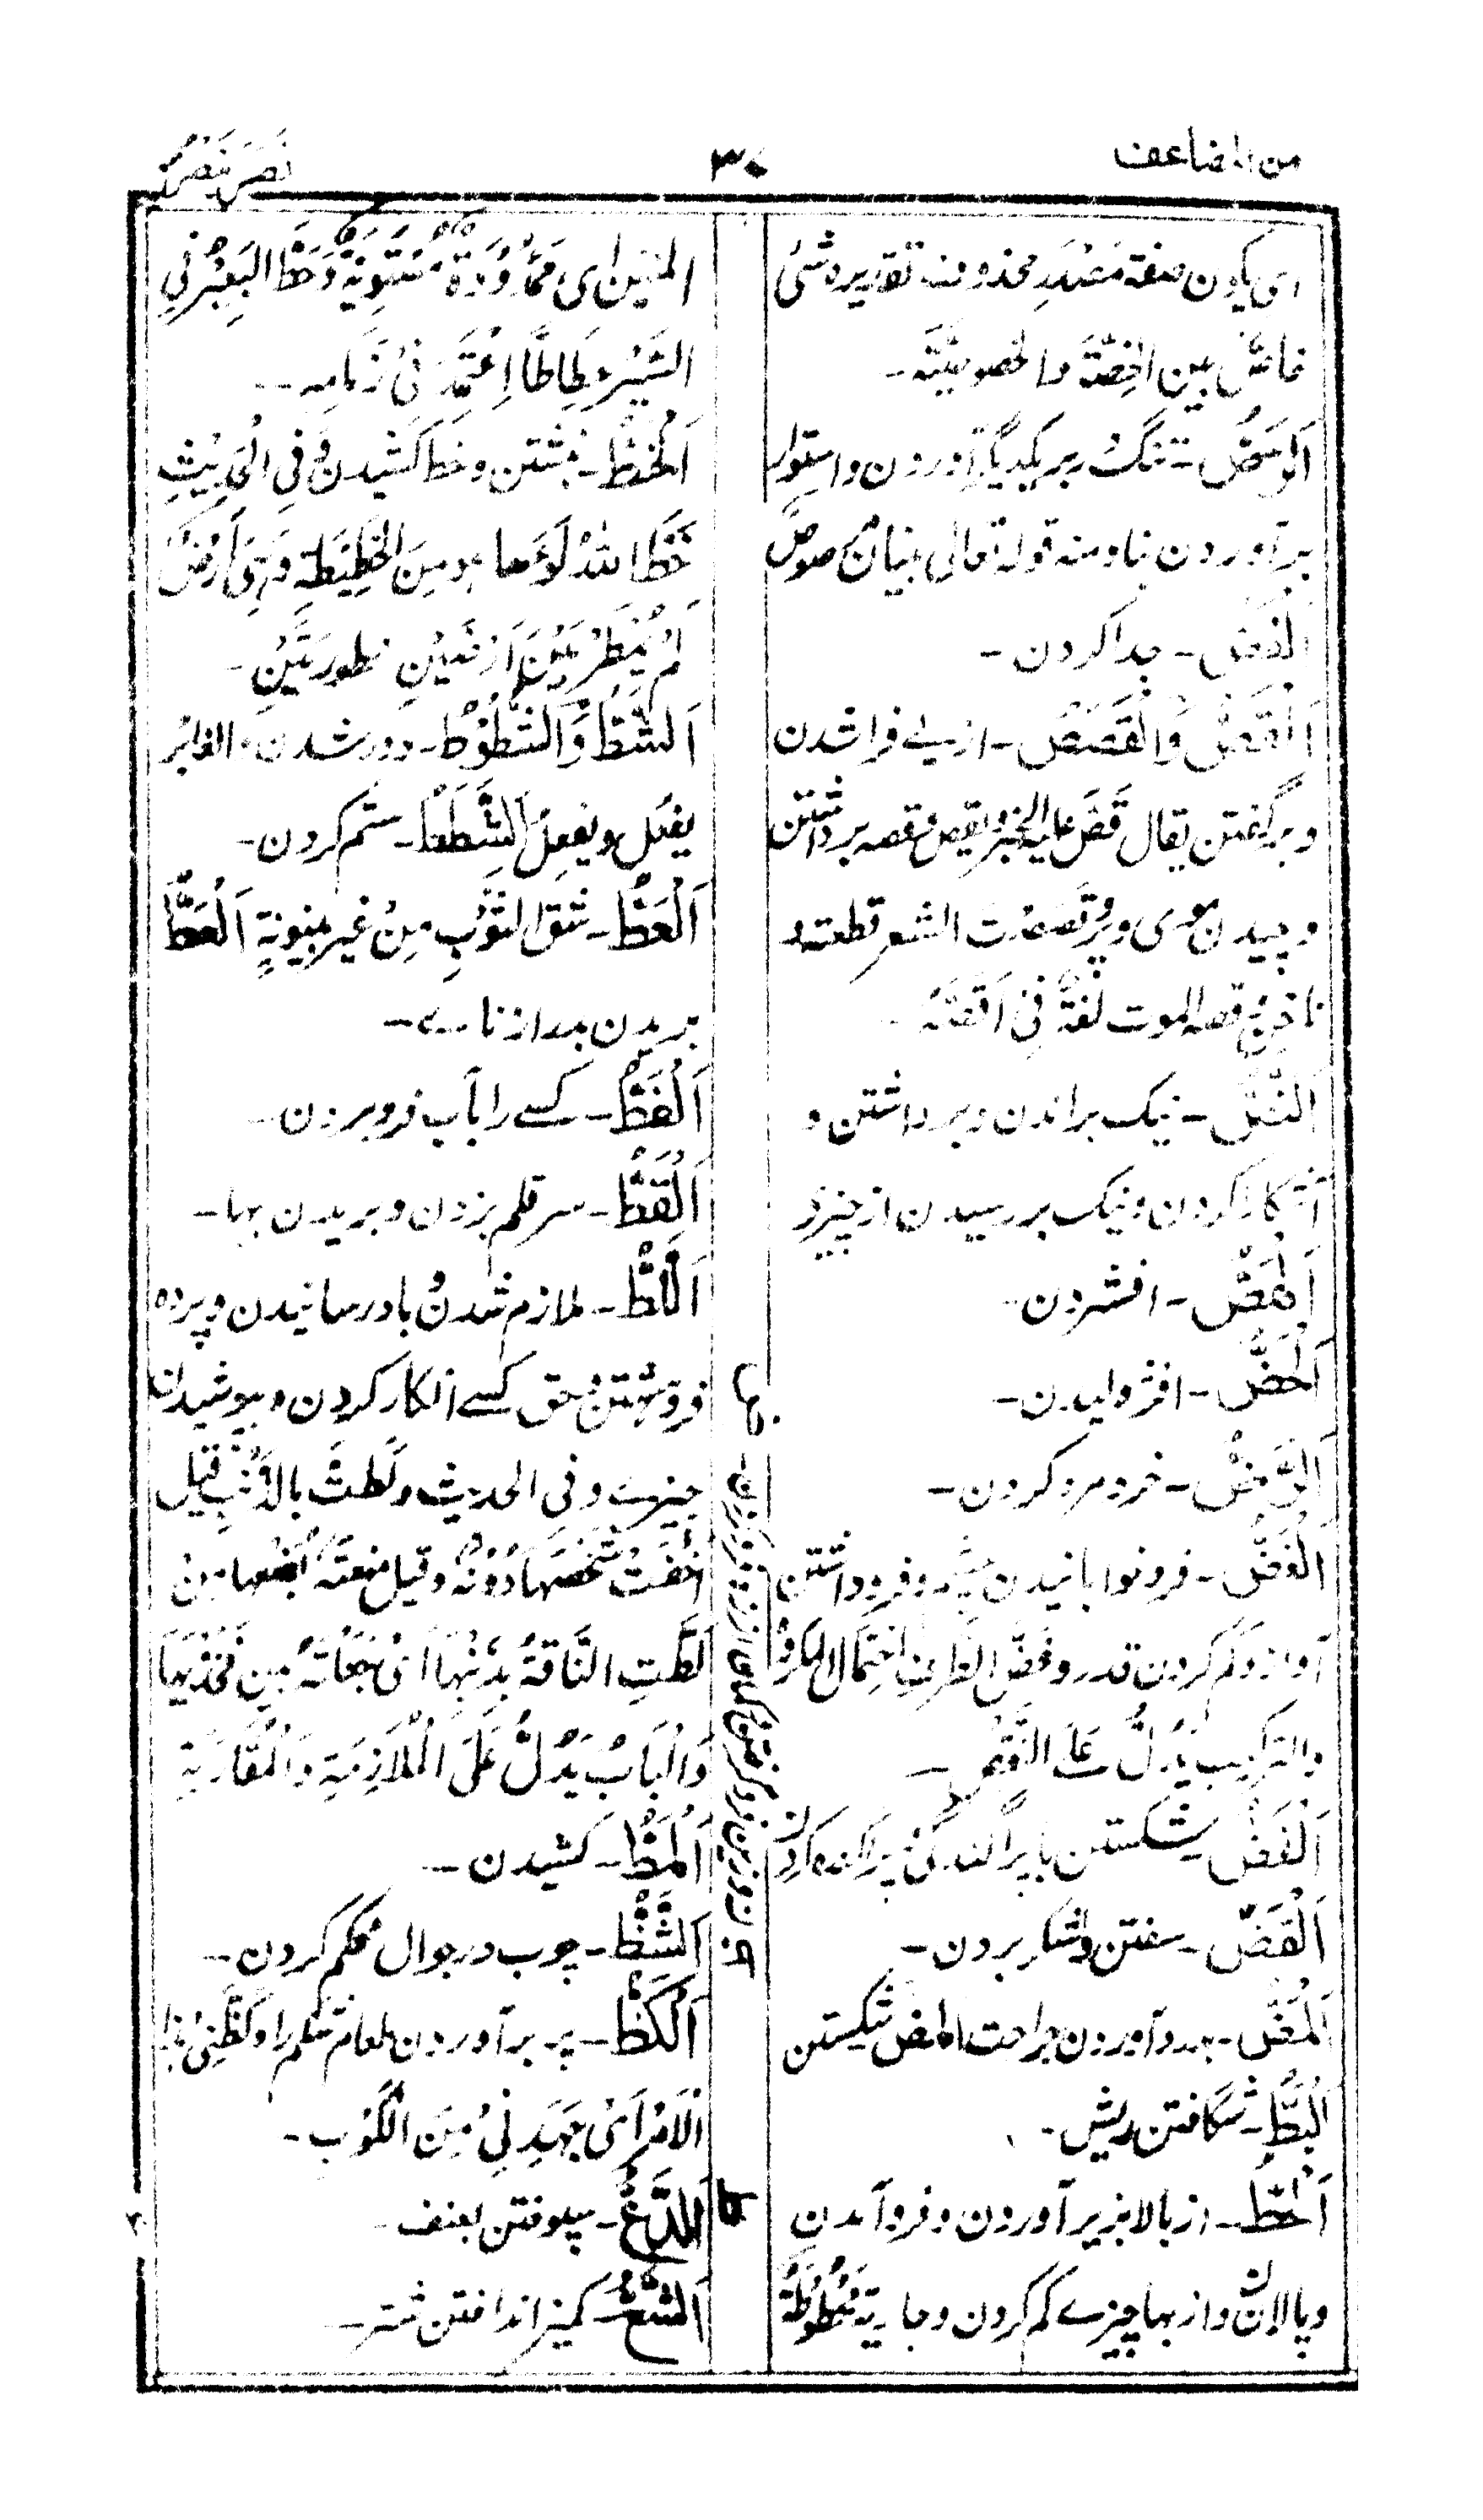 من المضاعف
٣٠
نَصَرَ يَنْصُرُ
اى يكون صفة مَصْدَرٍ محذوف تقديره شئ
خاصٌّ بين الخِصَّة والخصوصيّة۔
اَلرَّصُّ۔ تنگ بريكديگر آوردن واستوار
برآوردن بنا ومنه قوله تعالى بنيان مرصوص
اَلْفَصُّ۔ جدا كردن۔
اَلْقَصُّ وَالْقَصَصُ۔ از پے فرا شدن
وبرگفتن يقال قَصَّ عليه الخبر وقصص وقصه برداشتن
وچيدن موى وپر وقَصَصْتُ الشعر قطعته و
ناخن قصه الموت لُغَةٌ فى اَقَصَّهُ۔
اَلنَّصُّ۔ نيك براندن وبرداشتن و
آشكارا كردن ونيك بررسيدن از چيزے
اَلْهَصُّ۔ افشردن۔
اَلْحَضُّ۔ افژوليدن۔
اَلرَّضُّ۔ خرد مرد كردن۔
اَلْغَضُّ۔ فروخوابانيدن چشم وفروداشتن
آواز وكم كردن قدر وغَضُّ الطرف احتمال المكروه
والتركيب يَدُلُّ على النَّقْصِ۔
اَلْفَضُّ۔ شكستن با پراگندگى وپراگنده كردن
اَلْقَضُّ۔ سفتن وبكار بردن۔
اَلْمَضُّ۔ بدرد آوردن جراحت المض شكستن
اَلْبَطُّ۔ شگافتن ريش۔
اَلْحَطُّ۔ از بالا بزير آوردن وفروآمدن
وپالان واز بها چيزے كم كردن وجارية مَحْطُوطَةُ
المتنين اى مَمْدُودَةٌ مُسْتَوِيَةٌ وَحَطَّ البَعِيْرُ فِى
السَّيْرِ حِطَاطًا اِعْتَمَدَ فِىْ زَمَامِهِ۔
اَلْخَطُّ۔ نبشتن وخط كشيدن وَفِى الْحَدِيْثِ
خَطَّ اللهُ نَوْءَهَا هو مِنَ الْخَطِيْطَةِ وَهِىَ اَرْضٌ
لَمْ يُمْطَرْ بَيْنَ اَرْضَيْنِ مطورتَيْنِ۔
اَلشَّطُّ وَالشُّطُوْطُ۔ دور شدن والغابر
يفعُل ويفعِل اَلشَّطَط۔ ستم كردن۔
اَلْعَطُّ۔ شَقُّ الثَّوْبِ مِنْ غير بينونةٍ اَلْعَطُّ
بريدن بدرازنائے۔
اَلْغَطُّ۔ كسے را بآب فروبردن۔
اَلْقَطُّ۔ سر قلم بزدن وبريدن بها۔
اَللَّطُّ۔ ملازم شدن وبادرسانيدن وپرده
فروهشتن وحق كسے انكار كردن وبپوشيدن
چيزے وفى الحديث ولَطَّتْ بالذَّنْبِ قيل
اَخْفَتْ شَخْصَهَا دُوْنَهُ وقيل منعته بُضْعَها مِنْ
لَطَّتِ النَّاقَةُ بِذَنَبِهَا اَىْ جَعَلَتْهُ بين فَخْذَيْهَا
وَالْبَابُ يَدُلُّ عَلَى الْمُلَازَمَةِ وَالْمُقَارَبَةِ
اَلْمَطُّ۔ كشيدن۔
اَلشَّظُّ۔ چوب در جوال محكم كردن۔
اَلْكَظُّ۔ پر برآوردن طعام شكم را وكَظَّنِىْ هذا
الْاَمْرُ اَىْ جَهَدَنِىْ مِنَ الْكَرْبِ۔
اَلدَّعُّ۔ سپوختن بعنف۔
اَلشَّعُّ۔ كميز انداختن شتر۔